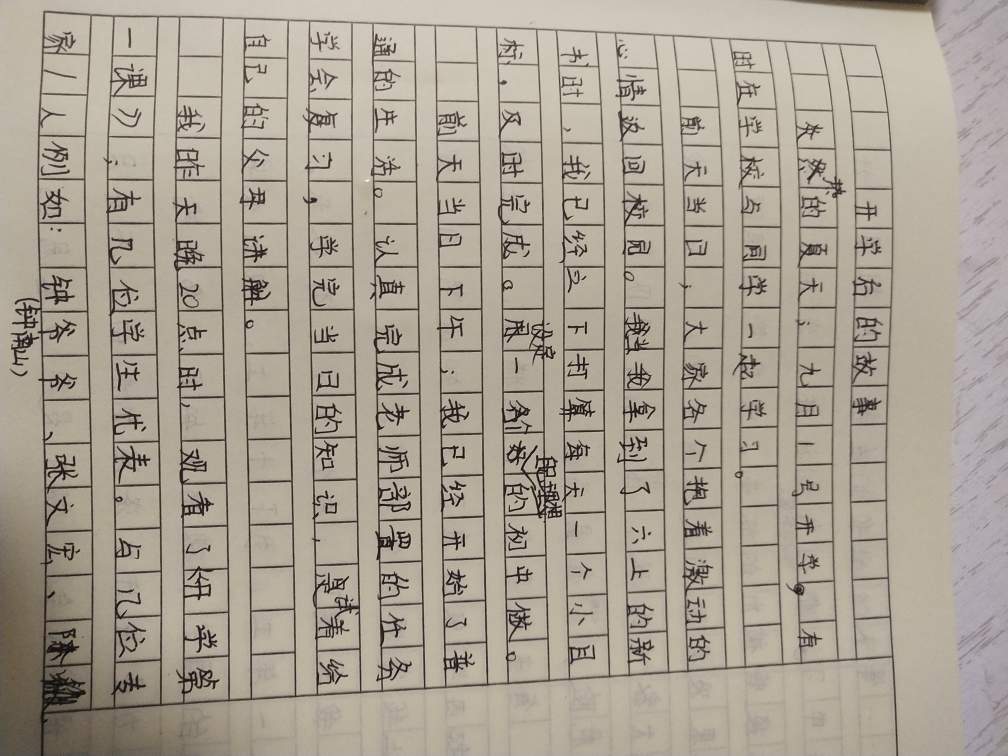 开学后的故事
炎热的夏天；九月1号开学，有
时在学校与同学一起学习。
前天当日，大家各个抱着激动的
心情返回校园。当我拿到了六上的新
书时，我已经立下打算每天一个小目
标，及时完成。设定一个自己理想的初中做。
前天当日下午；我已经开始了普
通的生活。认真完成老师部置的任务
学会复习，学完当日的知识，试着给
自己的父母讲解。
我昨天晚20点时，观看了《开学第
一课》；有几位学生代表。与几位专
家/人例如：钟爷爷、张文宏、陈
(钟南山)